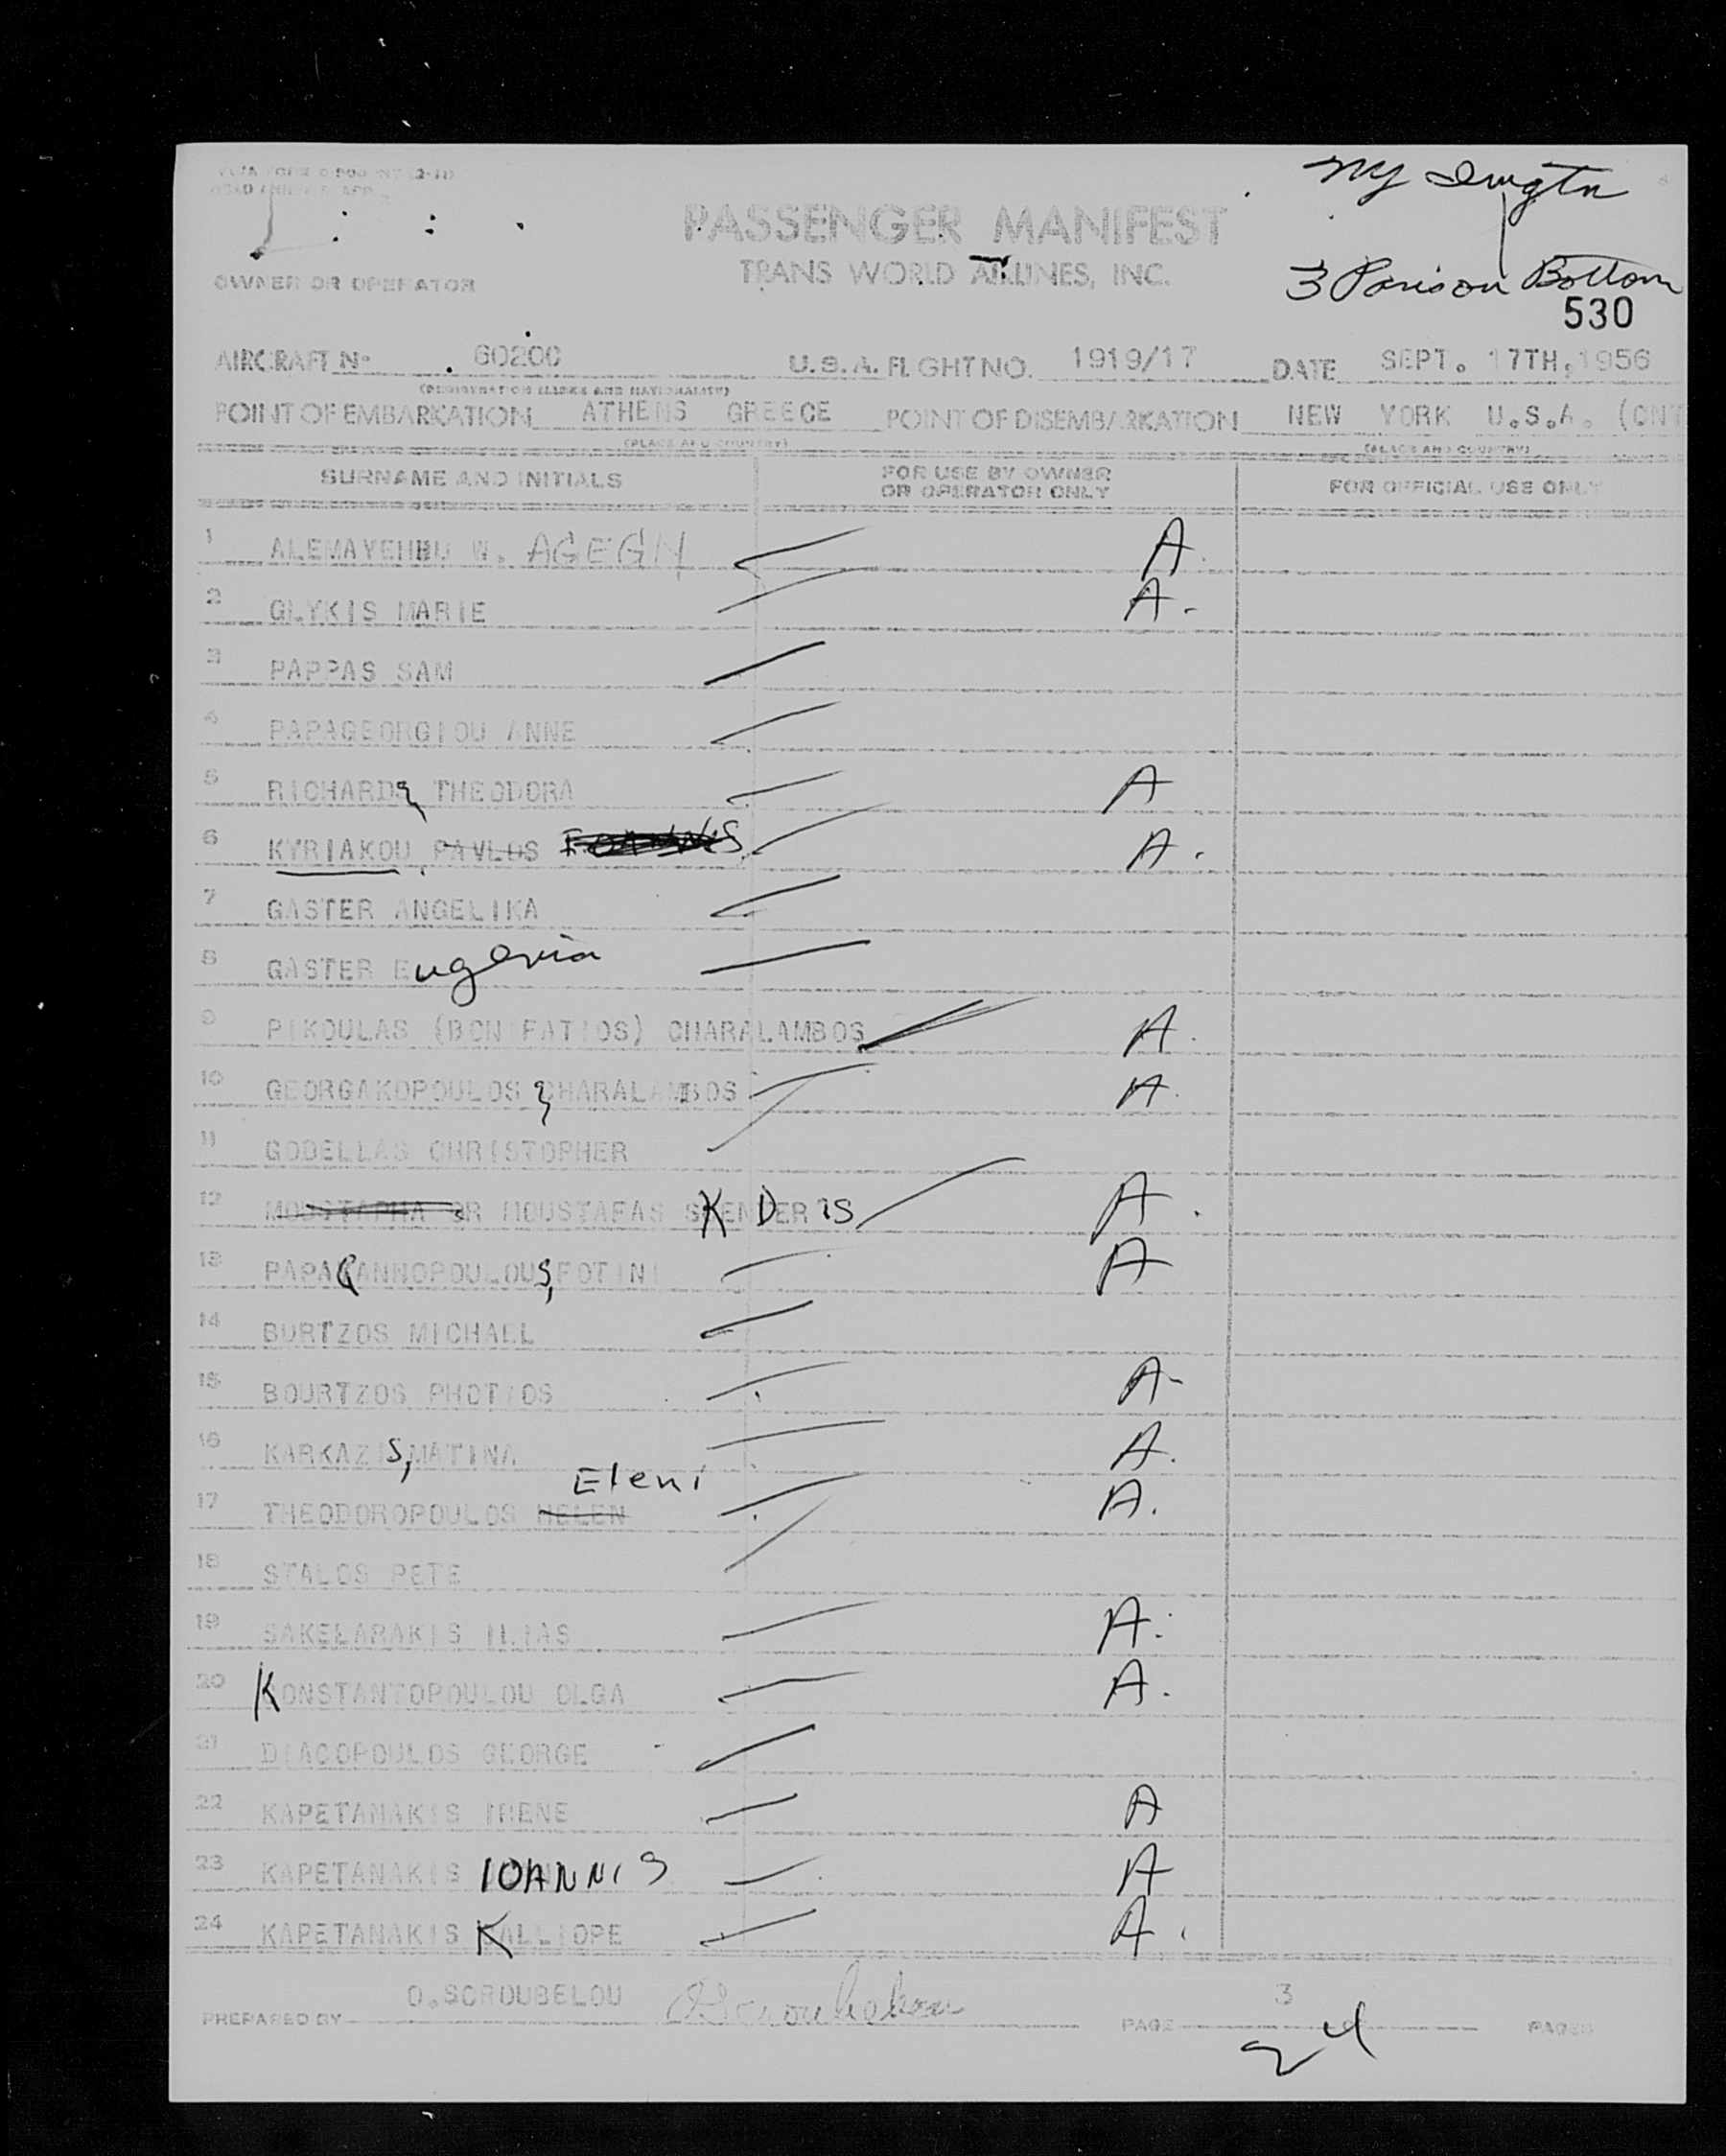 NY Imgtn
PASSENGER MANIFEST
TRANS WORLD AIRLINES, INC.
OWNER OR OPERATOR
3 Bottom
530
AIRCRAFT No 60200 U.S.A. FLIGHT NO. 1919/17 DATE SEPT. 17TH, 1956
(REGISTRATION MARKS AND NATIONALITY)
POINT OF EMBARKATION ATHENS GREECE POINT OF DISEMBARKATION NEW YORK U.S.A. (CNT
(PLACE AND COUNTRY) (PLACE AND COUNTRY)
SURNAME AND INITIALS FOR USE BY OWNER OR OPERATOR ONLY FOR OFFICIAL USE ONLY
1 ALEMAYEHU W. AGEGN A.
2 GLYKIS MARIE A.
3 PAPPAS SAM
4 PAPAGEORGIOU ANNE
5 RICHARDS, THEODORA A
6 KYRIAKOU, PAVLOS IOANNIS A.
7 GASTER ANGELIKA
8 GASTER Eugenia
9 PIKOULAS (BONIFATIOS) CHARALAMBOS A.
10 GEORGAKOPOULOS, CHARALAMBOS A.
11 GODELLAS CHRISTOPHER
12 MOUSTAPHA OR MOUSTAFAS SKENDERIS A.
13 PAPAGANNOPOULOUS, FOTINI A
14 BURTZOS MICHAEL
15 BOURTZOS PHOTIOS A-
16 KARKAZIS, MATINA A.
Eleni
17 THEODOROPOULOS HELEN A.
18 STALOS PETE
19 SAKELARAKIS ILIAS A.
20 KONSTANTOPOULOU OLGA A.
21 DIACOPOULOS GEORGE
22 KAPETANAKIS IRENE A
23 KAPETANAKIS IOANNIS A
24 KAPETANAKIS KALLIOPE A.
PREPARED BY O.SCROUBELOU OScroubelou PAGE 3 PAGES
24